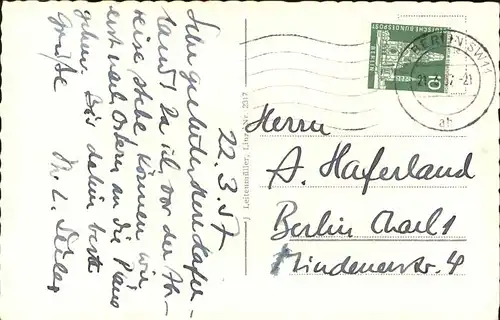 22. 3. 57
Sehr geehrter Herr Hafer-
land! Da ich vor der Ab-
reise stehe können wir
erst nach Ostern an die Piano
gehen. Bis dahin beste
Grüße
Ihr L.
J. Leitenmüller, Linz, Nr. 2317
DEUTSCHE BUNDESPOST
BERLIN
10
BERLIN SW11
Herrn
A. Haferland
Berlin Charl 1
Mindenerstr. 4